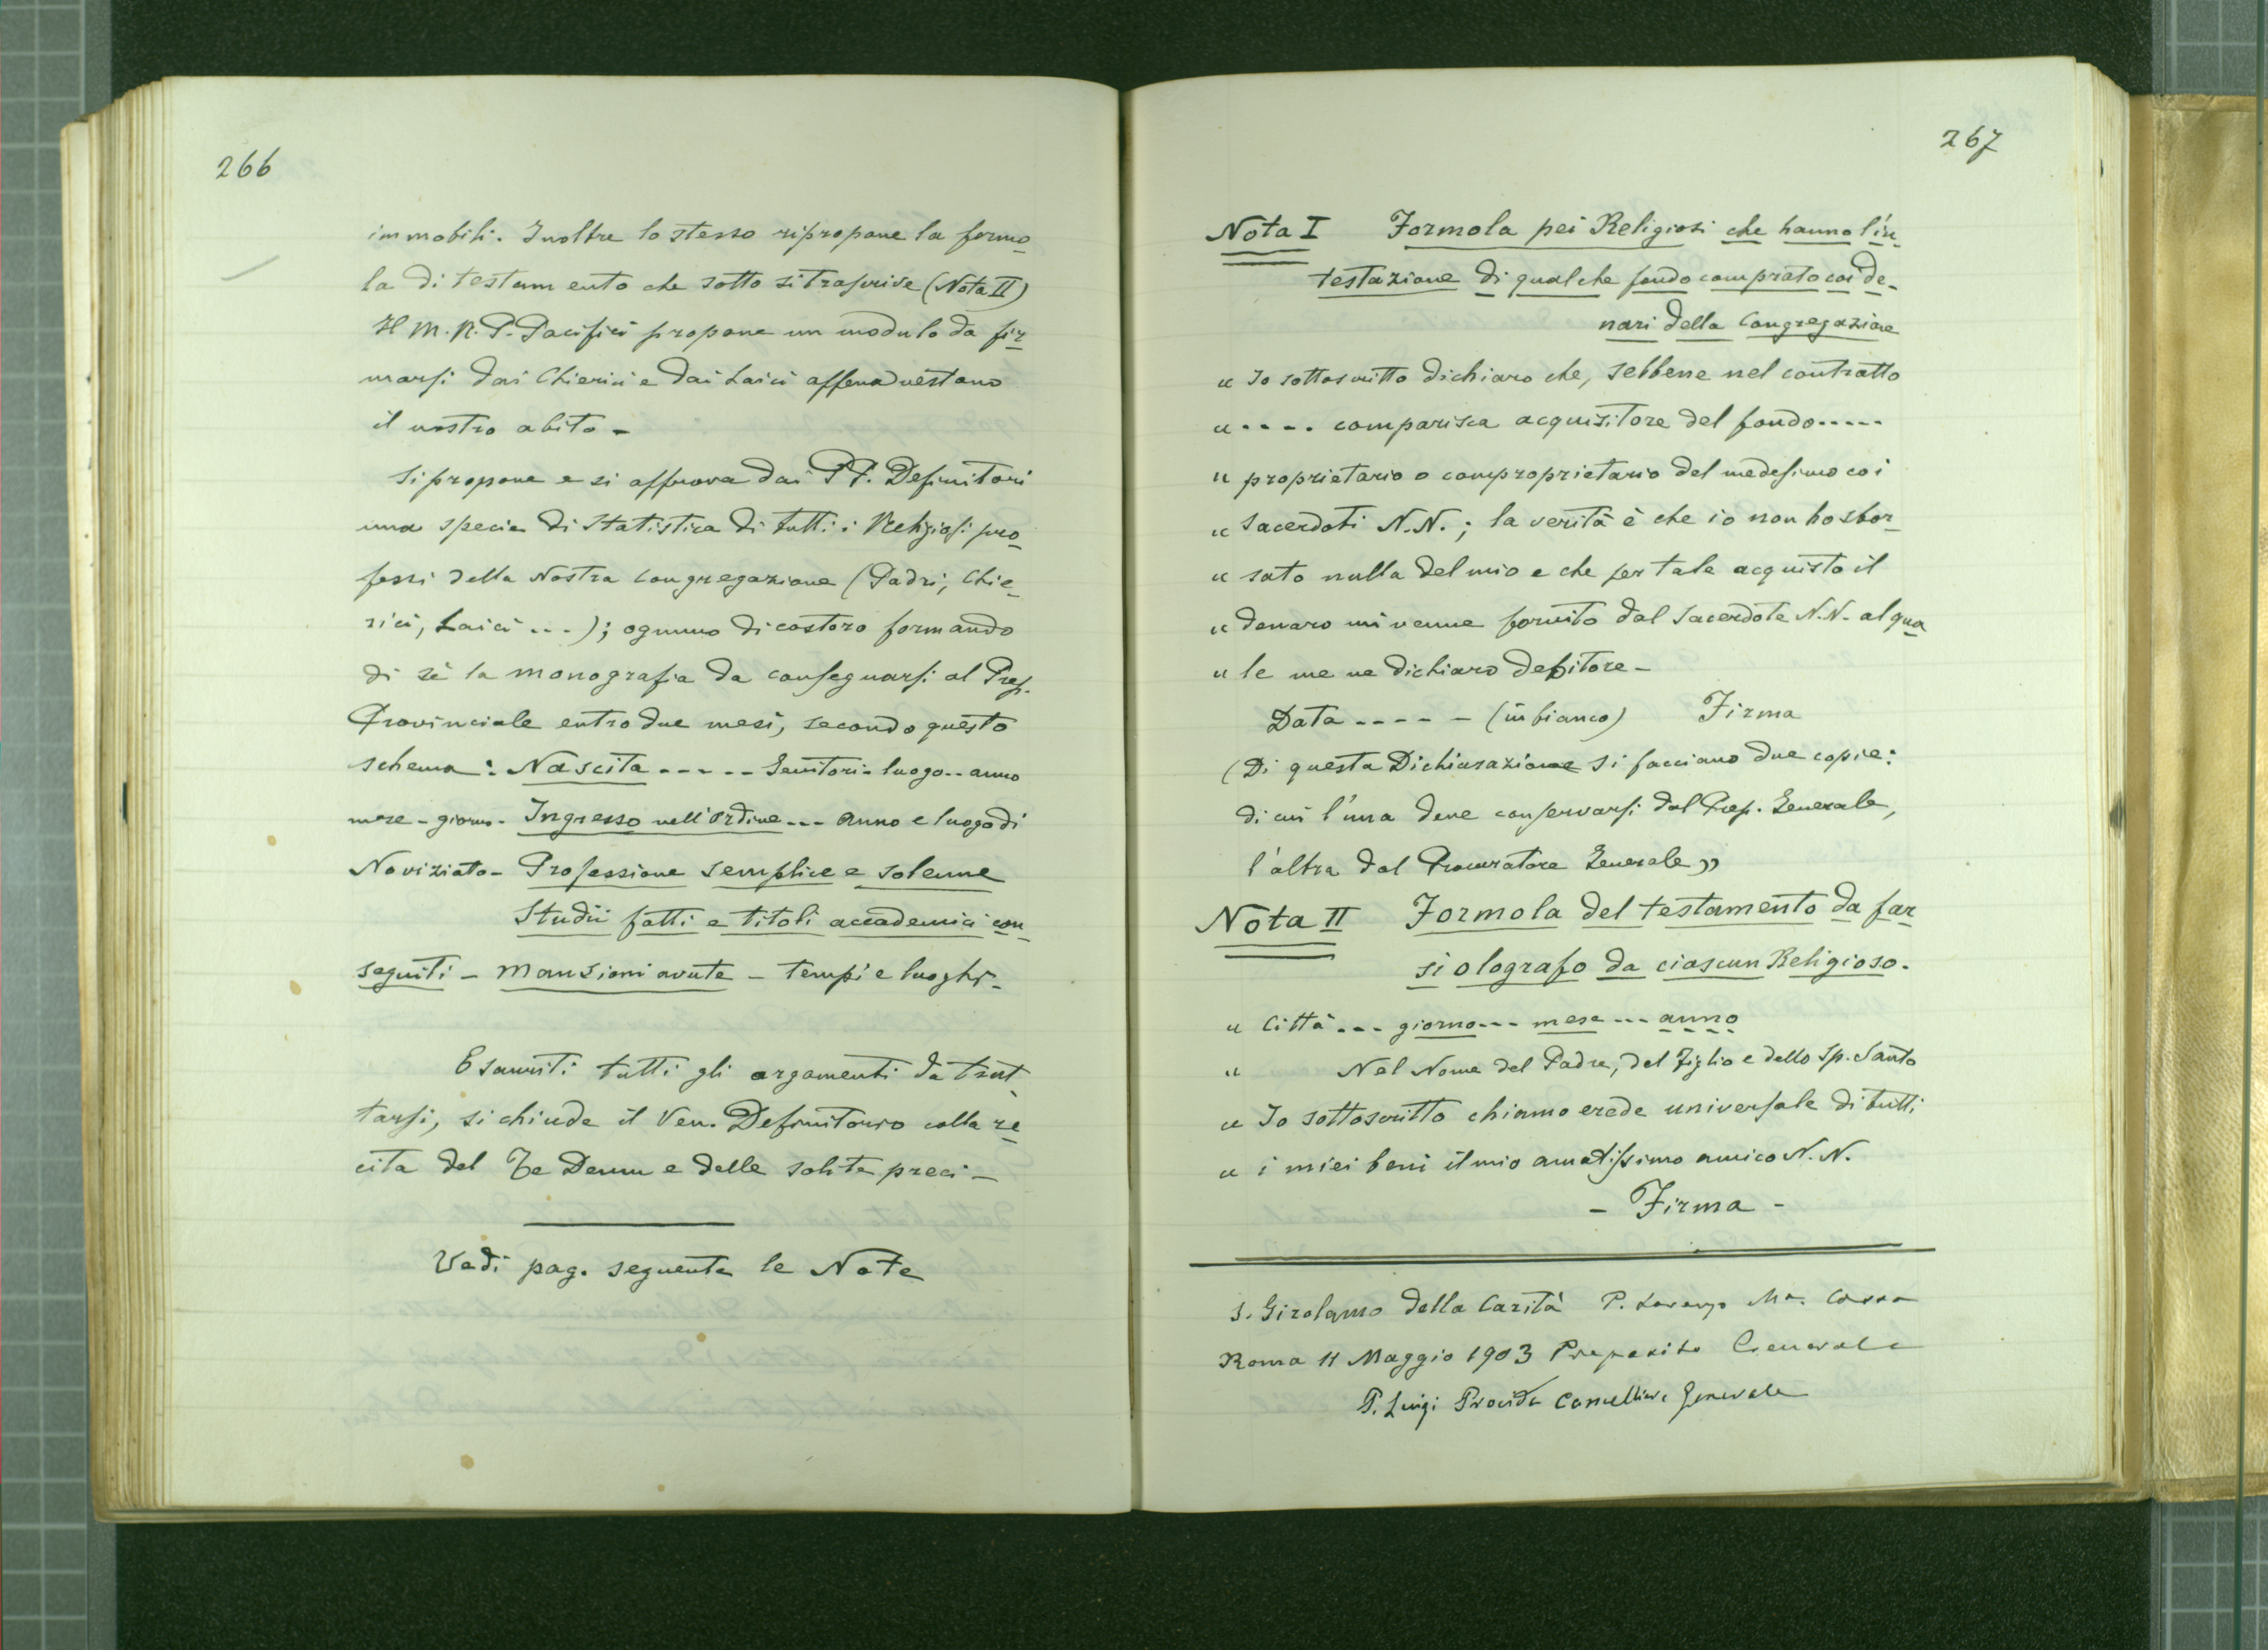 266
immobili. Inoltre lo stesso ripropone la formo_
la di testamento che sotto si trascrive (Nota II)
Il M. R. P. Pacifici propone un modulo da fir_
marsi dai Chierici e dai Laici appena vestano
il nostro abito -
Si propone e si approva dai PP. Definitori
una specie di Statistica di tutti i Religiosi pro_
fessi della Nostra Congregazione (Padri, Chie_
rici, Laici ...); ognuno di costoro formando
di sè la monografia da consegnarsi al Prep.
Provinciale entro due mesi, secondo questo
schema: Nascita ----- Genitori - luogo -- anno
mese - giorno - Ingresso nell'Ordine --- anno e luogo di
Noviziato - Professione semplice e solenne
Studii fatti e titoli accademici con_
seguiti - Mansioni avute - tempi e luoghi -
Esauriti tutti gli argomenti da trat_
tarsi, si chiude il Ven. Definitorio colla re_
cita del Te Deum e delle solite preci -
Vedi pag. seguente le Note
267
Nota I Formola pei Religiosi che hanno l'in_
testazione di qualche fondo comprato coi de_
nari della Congregazione
" Io sottoscritto dichiaro che, sebbene nel contratto
" .... comparisca acquisitore del fondo .....
" proprietario o comproprietario del medesimo coi
" Sacerdoti N.N.; la verità è che io non ho sbor_
" sato nulla del mio e che per tale acquisto il
" denaro mi venne fornito dal Sacerdote N.N. al qua_
" le me ne dichiaro debitore -
Data ----- (in bianco) Firma
(Di questa Dichiarazione si facciano due copie:
di cui l'una deve conservarsi dal Prep. Generale,
l'altra dal Procuratore Generale "
Nota II Formola del testamento da far
si olografo da ciascun Religioso.
" Città ... giorno --- mese --- anno
" Nel Nome del Padre, del Figlio e dello Sp. Santo
" Io sottoscritto chiamo erede universale di tutti
" i miei beni il mio amatissimo amico N.N.
- Firma -
S. Girolamo della Carità P. Lorenzo Ma. Cossa
Roma 11 Maggio 1903 Preposito Generale
P. Luigi Procida Cancelliere Generale